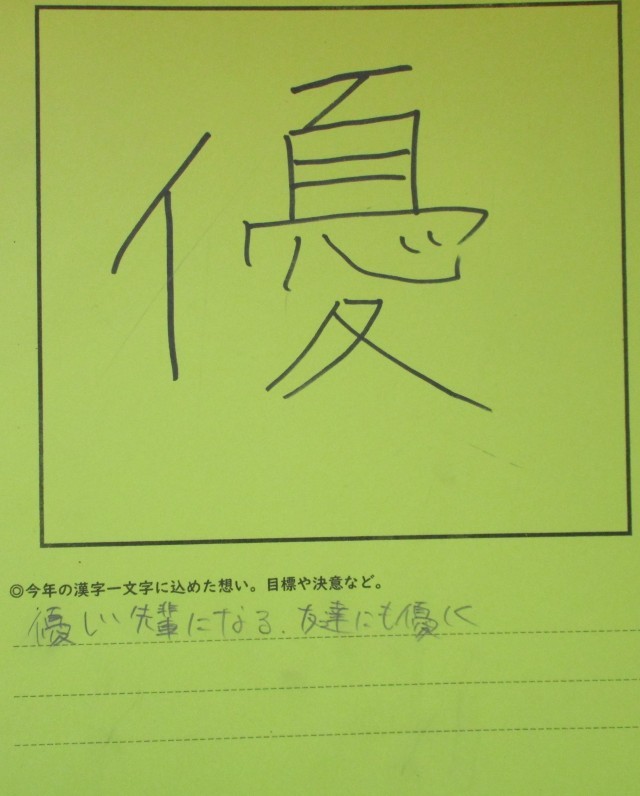 優
◎今年の漢字一文字に込めた想い。目標や決意など。
優しい先輩になる、友達にも優しく